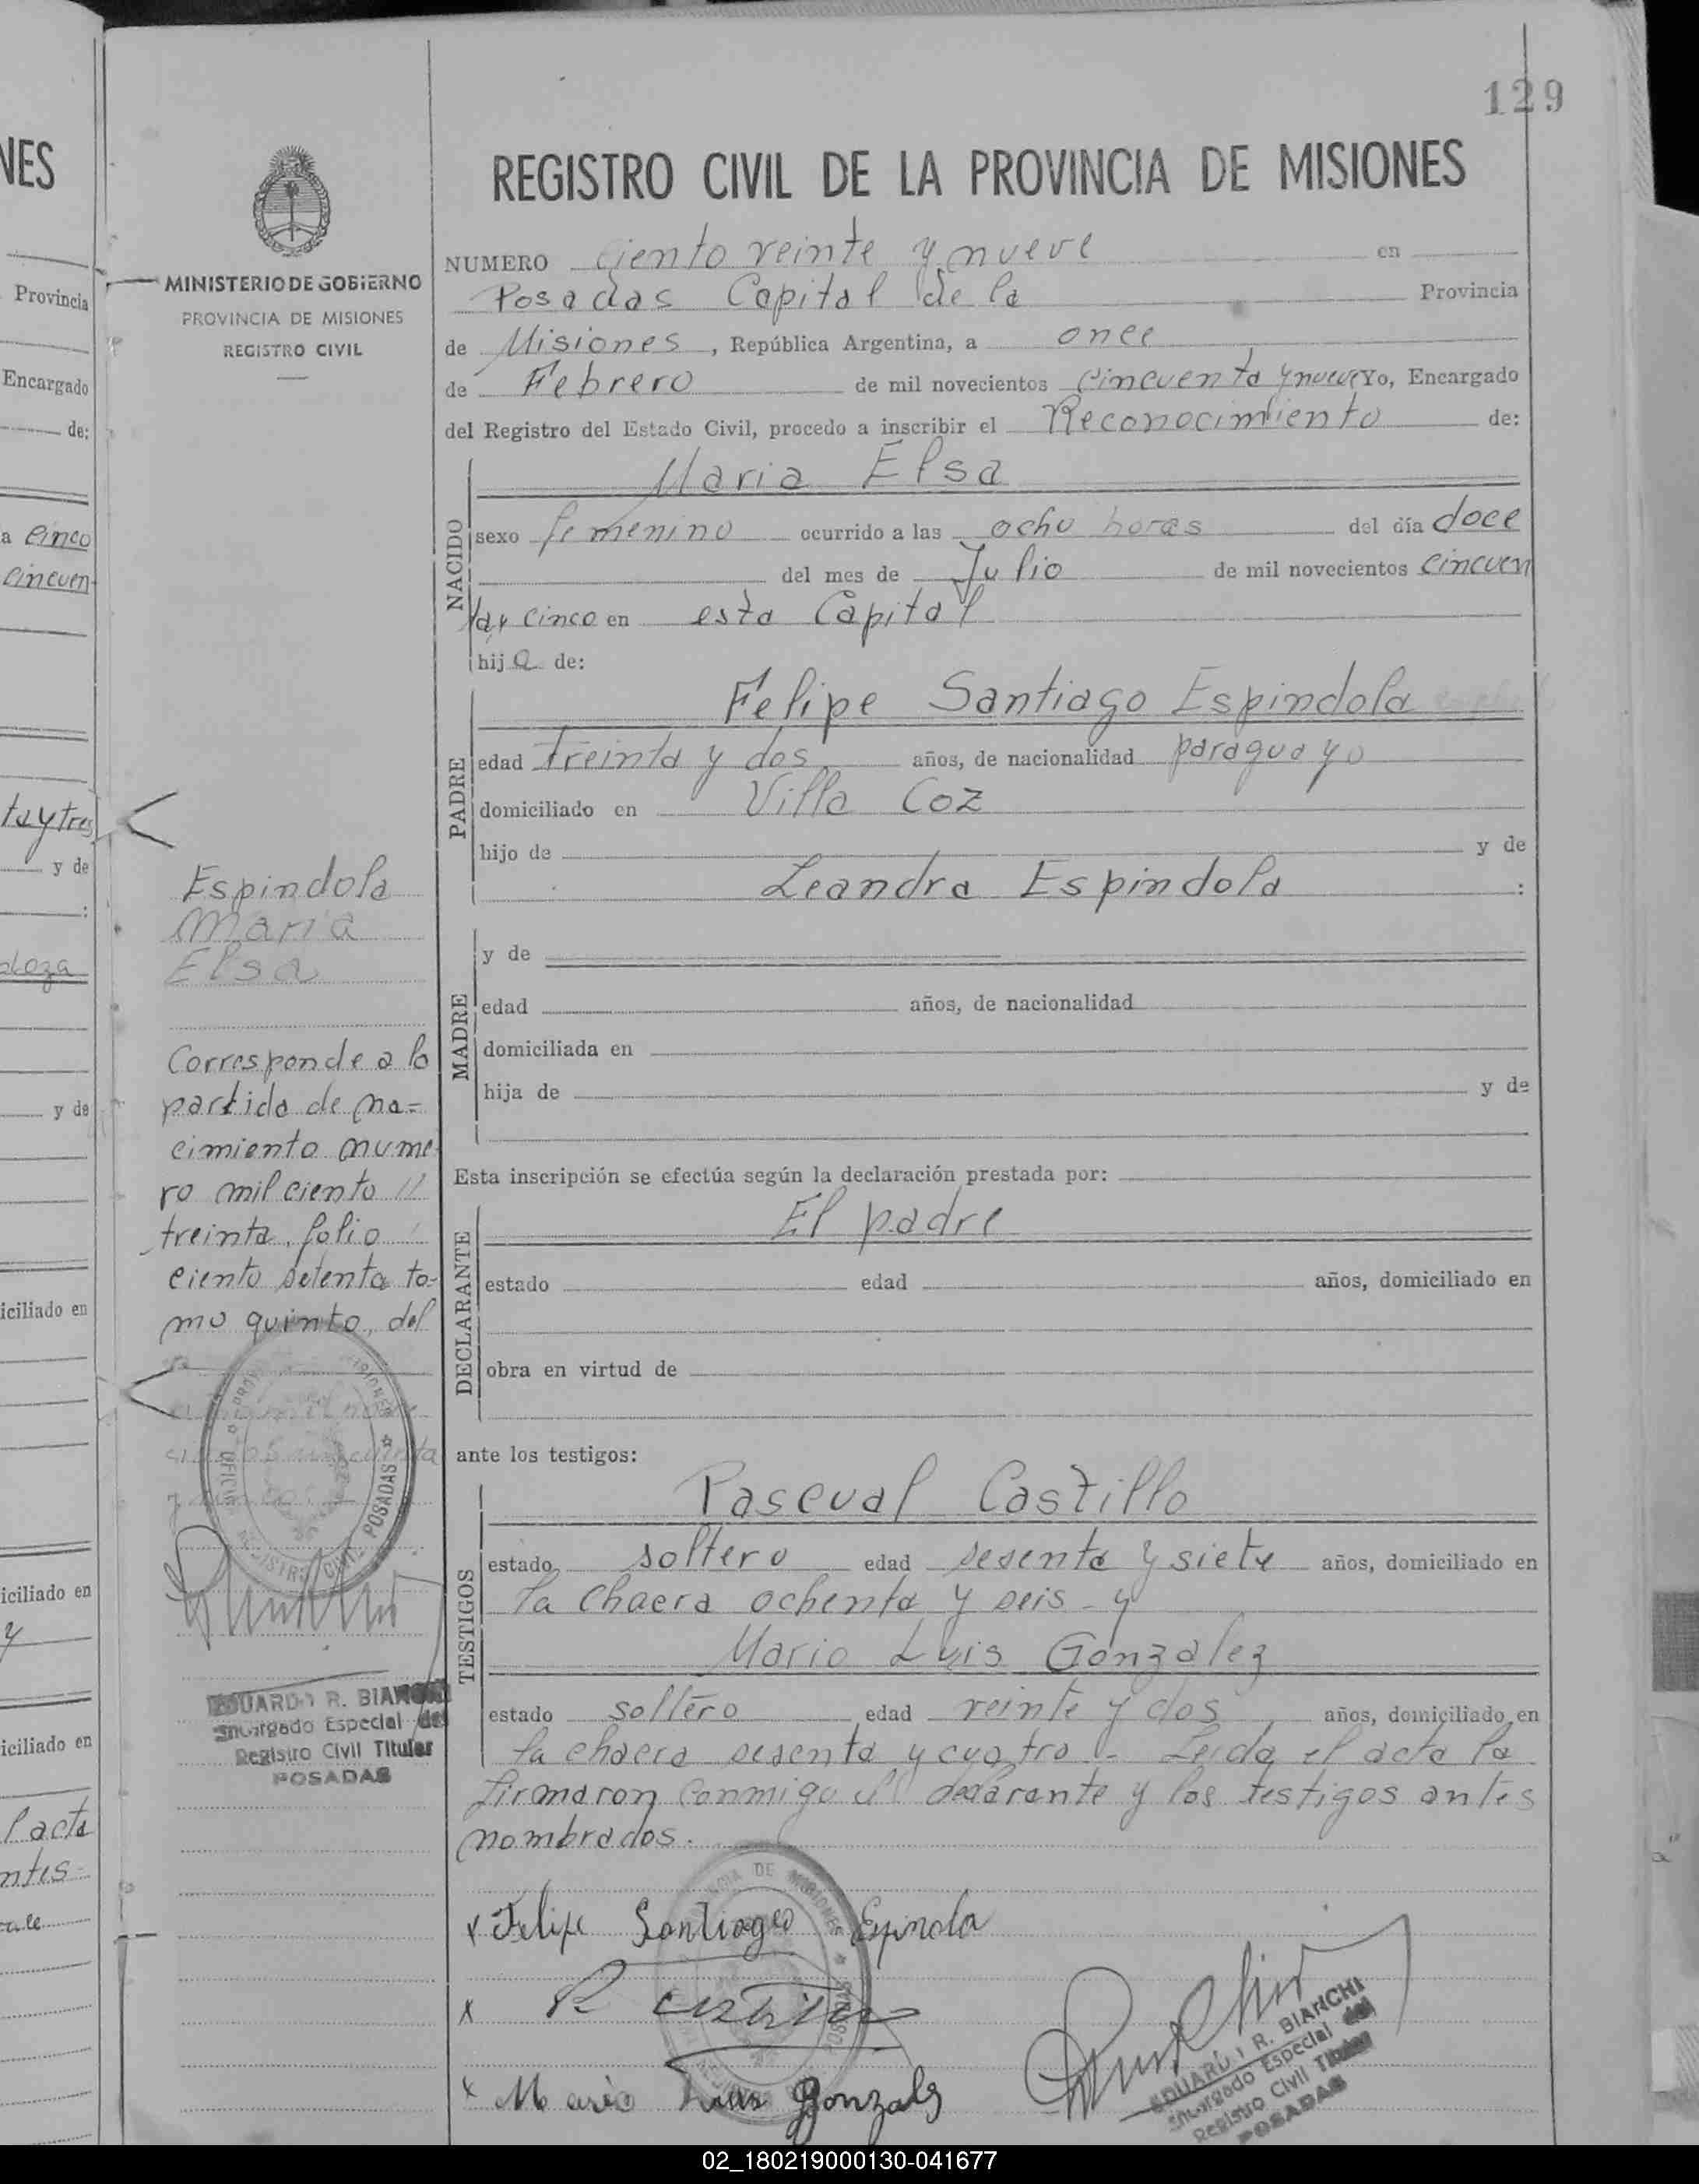 129
NES
REGISTRO CIVIL DE LA PROVINCIA DE MISIONES
MINISTERIO DE GOBIERNO
PROVINCIA DE MISIONES
REGISTRO CIVIL
NUMERO ciento veinte y nueve en
Posadas Capital de la Provincia
de Misiones, República Argentina, a once
de Febrero de mil novecientos cincuenta y nueve Yo, Encargado
del Registro del Estado Civil, procedo a inscribir el Reconocimiento de:
NACIDO
Maria Elsa
sexo femenino ocurrido a las ocho horas del día doce
del mes de Julio de mil novecientos cincuen
ta y cinco en esta Capital
hija de:
PADRE
Felipe Santiago Espindola
edad treinta y dos años, de nacionalidad paraguayo
domiciliado en Villa Coz
hijo de y de
Leandra Espindola :
MADRE
y de
edad años, de nacionalidad
domiciliada en
hija de y de
Esta inscripción se efectúa según la declaración prestada por:
DECLARANTE
El padre
estado edad años, domiciliado en
obra en virtud de
ante los testigos:
TESTIGOS
Pascual Castillo
estado soltero edad sesenta y siete años, domiciliado en
la chacra ochenta y seis - y
Mario Luis Gonzalez
estado soltero edad veinte y dos años, domiciliado en
la chacra sesenta y cuatro - Leida el acta la
firmaron conmigo el declarante y los testigos antes
nombrados.
x Felipe Santiago Espinola
x P Castillo
x Mario Luis Gonzalez
EDUARDO R. BIANCHI
Encargado Especial del
Registro Civil Titular
POSADAS
Espindola
Maria
Elsa
Corresponde a la
partida de na=
cimiento nume
ro mil ciento //
treinta, folio
ciento setenta to-
mo quinto, del
EDUARDO R. BIANCHI
Encargado Especial del
Registro Civil Titular
POSADAS
Provincia
Encargado
de:
a cinco
cincuen-
ta y tres
y de
y de
iciliado en
iciliado en
y
iciliado en
l acta
ntes-
02_180219000130-041677